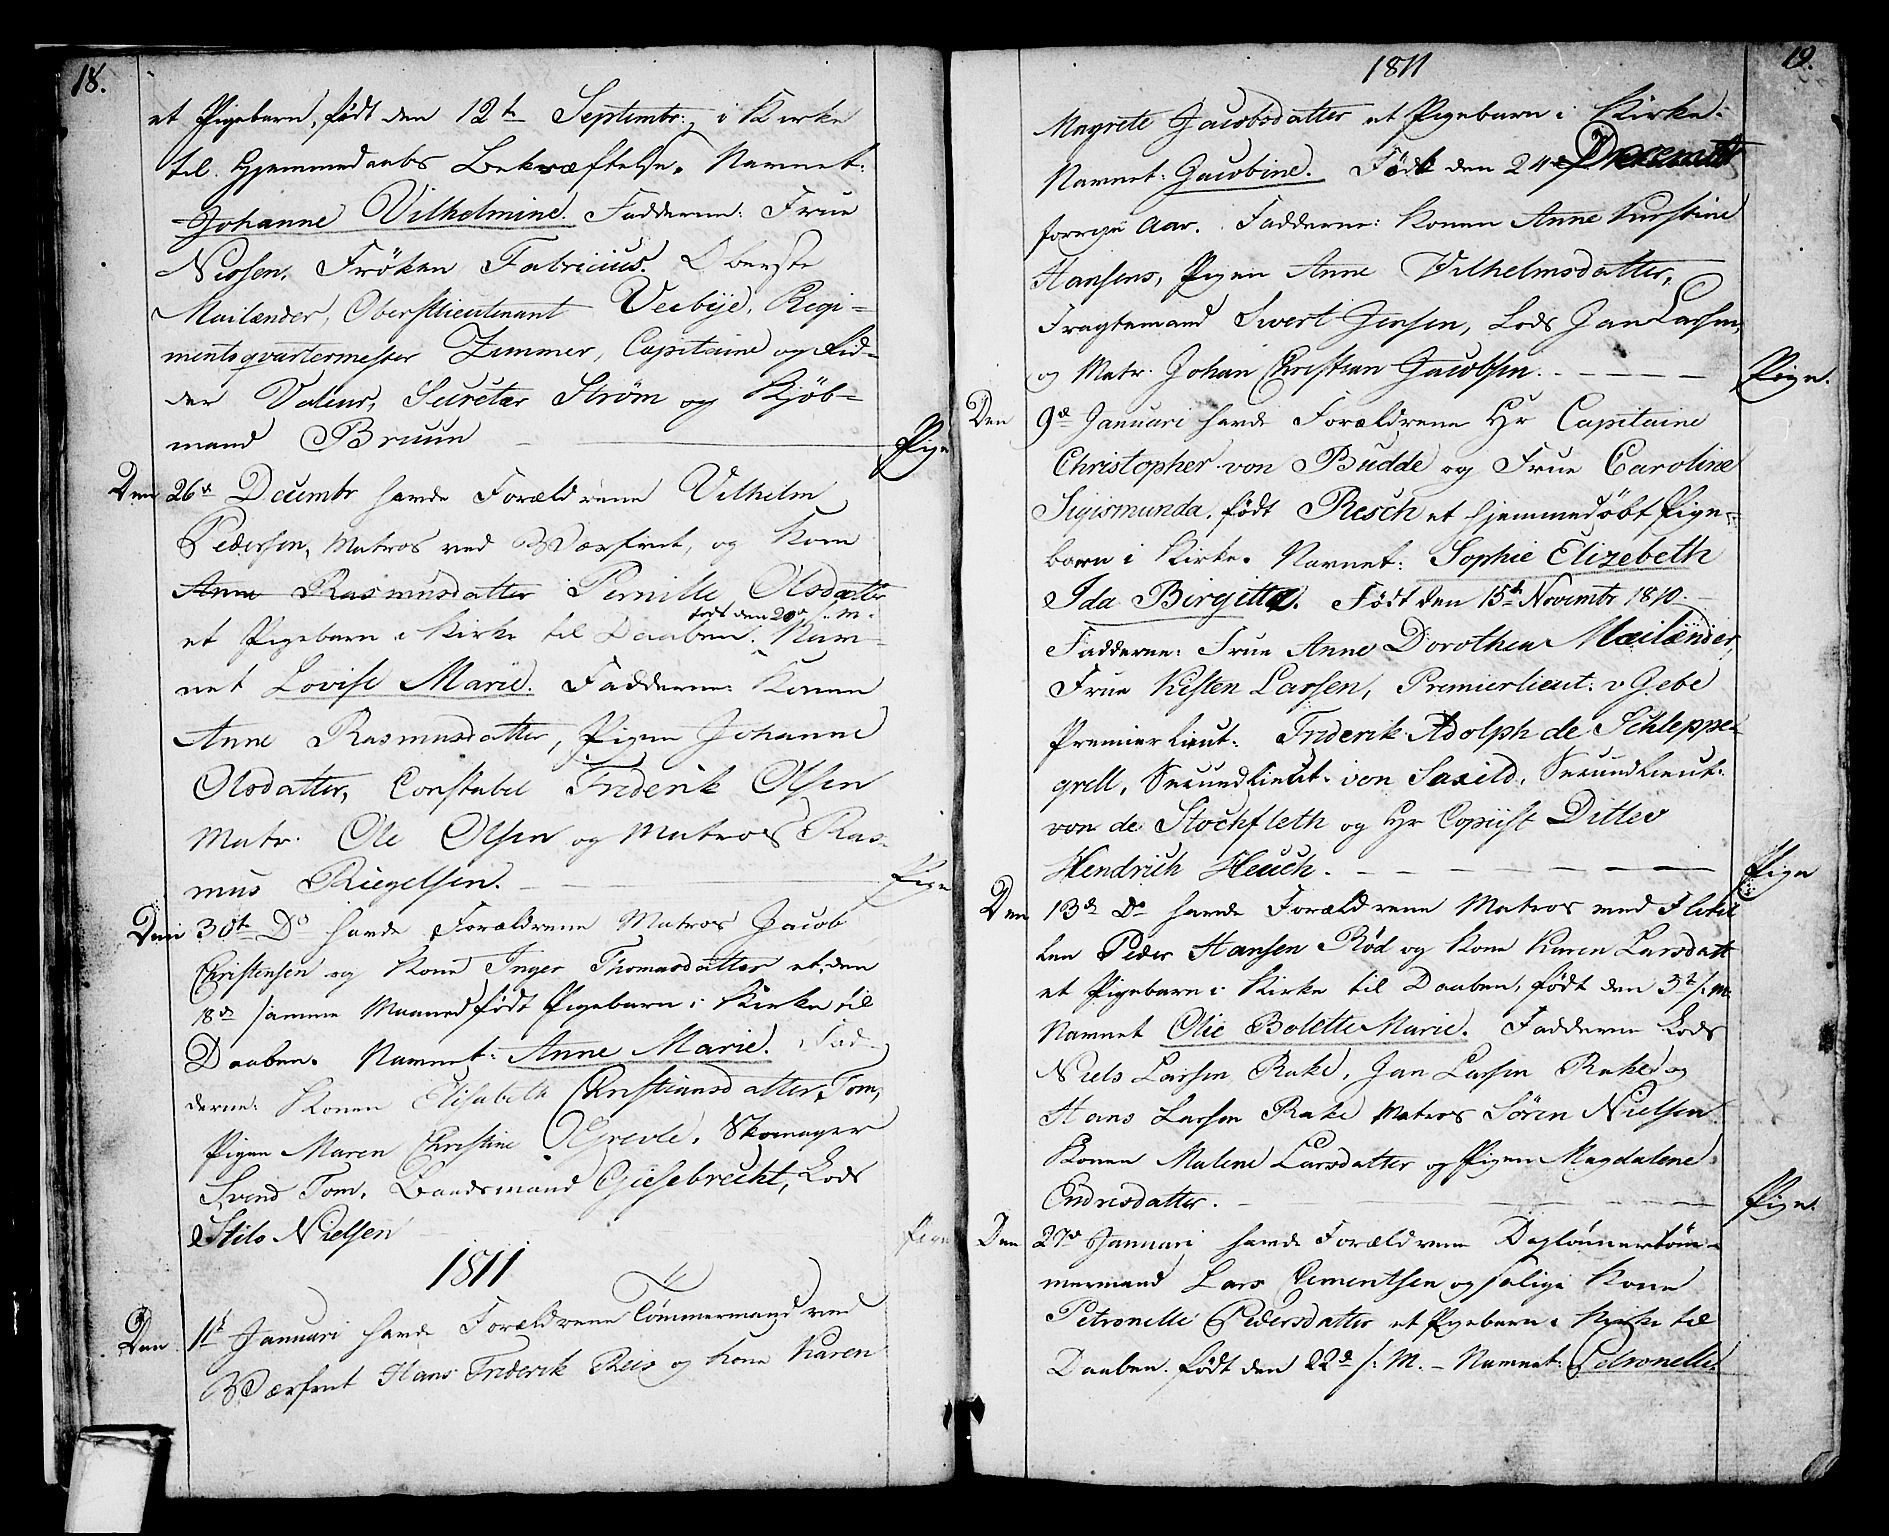 18.
et Pigebarn, født den 12te Septembr: i Kirke
til Hjemmedaabs Bekræftelse. Navnet:
Johanne Vilhelmine. Fadderne: Frue
Nissen, Frøken Fabricius. Oberste
Mailænder, Oberstlieutenant Veebÿe, Regi-
mentsqvartermester Zimmer, Capitaine og Rid-
der Valeur, Secretær Strøm og Kjøb-
mand Bruun
Pige
Den 26de Decembr havde Forældrene Vilhelm
Pedersen, Matros ved Værfvet, og Kone
Anne Rasmusdatter Pernille Olsdatter
født den 20de s. M.
et Pigebarn i Kirke til Daaben. Nav-
net Lovise Marie. Fadderne: Konen
Anne Rasmusdatter, Pigen Johanne
Olsdatter, Constabel Frederik Olsen
Matr. Ole Olsen og Matros Ras-
mus Riegelsen.
Pige
Den 30te Do havde Forældrene Matros Jacob
Christensen og Kone Inger Thomasdatter et, den
18de samme Maaned født Pigebarn i Kirke til
Daaben. Navnet: Anne Marie. Fad-
derne: Konen Elisabeth Christiansdatter Tom,
Pigen Maren Christine Grevle, Skomager
Svend Tom, Baadsmand Giesebrecht, Lods
Nielsen
Pige
1811
Den 1te Januari havde Forældrene Tømmermand ved
Værfvet Hans Frederik Reis og Kone Karen
1811
19.
Magrete Jacobsdatter et Pigebarn i Kirke.
Navnet: Jacobine. Født den 24de Decembr
forrige Aar. Fadderne: Konen Anne Kirstine
Hansens, Pigen Anne Vilhelmsdatter,
Fragtemand Sivert Jensen, Lods Jan Larsen,
og Matr. Johan Christian Jacobsen.
Pige.
Den 9de Januari havde Forældrene Hr Capitaine
Christopher von Budde og Frue Caroline
Sigismunda, født Resch et hjemmedøbt Pige-
barn i Kirke. Navnet: Sophie Elizebeth
Ida Birgitta. Født den 15de Novembr 1810.
Fadderne: Frue Anne Dorothea Mailänder,
Frue Kisten Larsen, Premierlieut: v Gebe
Premierlieut: Friderik Adolph de Schleppe-
grell, Secundlieut: von Saxild, Secundlieut:
von de Stochfleth og Hr Copiist Ditlev
Hendrich Heuch.
Pige
Den 13de Do havde Forældrene Matros ved Flotil
len Peder Hansen Rød og Kone Karen Larsdatt
et Pigebarn i Kirke til Daaben, født den 3de s. M.
Navnet Olie Bolette Marie. Fadderne Lods
Niels Larsen Rake, Jan Larsen Rake og
Hans Larsen Rake Matros Søren Nielsen
Konen Malene Larsdatter og Pigen Magdalene
Endresdatter.
Pige.
Den 27de Januari havde Forældrene Daglønnertøm-
mermand Lars Clementsen og salige Kone
Petronelle Pedersdatter et Pigebarn i Kirke til
Daaben. født den 22de s: M. – Navnet: Petronelle.